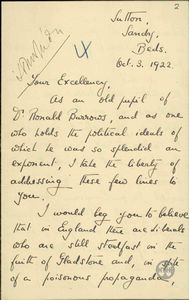 2
Sutton,
Sandy,
Beds.
Oct. 3. 1922.
Your Excellency,
As an old pupil of
Dr Ronald Burrows, and as one
who holds the political ideals of
which he was so splendid an
exponent, I take the liberty of
addressing these few lines to
you.
I would beg you to believe
that in England there are liberals
who are still stedfast in the
faith of Gladstone and, in spite
of a poisonous propaganda,